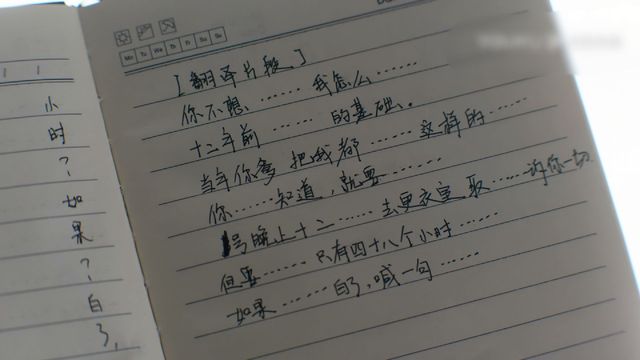 小
时
?
如
果
?
白
了,
Mo Tu We Th Fr Sa Su
[翻译片段]
你不想……我怎么……
十二年前……的基础。
当年你爹把我都……这样的……
你……知道,就要……
1号晚上十二……去更衣室取……许你一切
但要……只有四十八个小时……
如果……白了,喊一句……